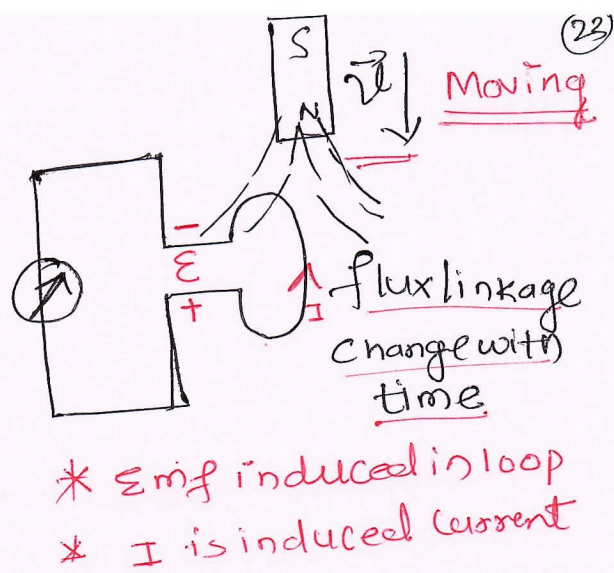 (23)
S
N
v⃗
Moving
-
ε
+
I
flux linkage
change with
time
* Emf induced in loop
* I is induced current